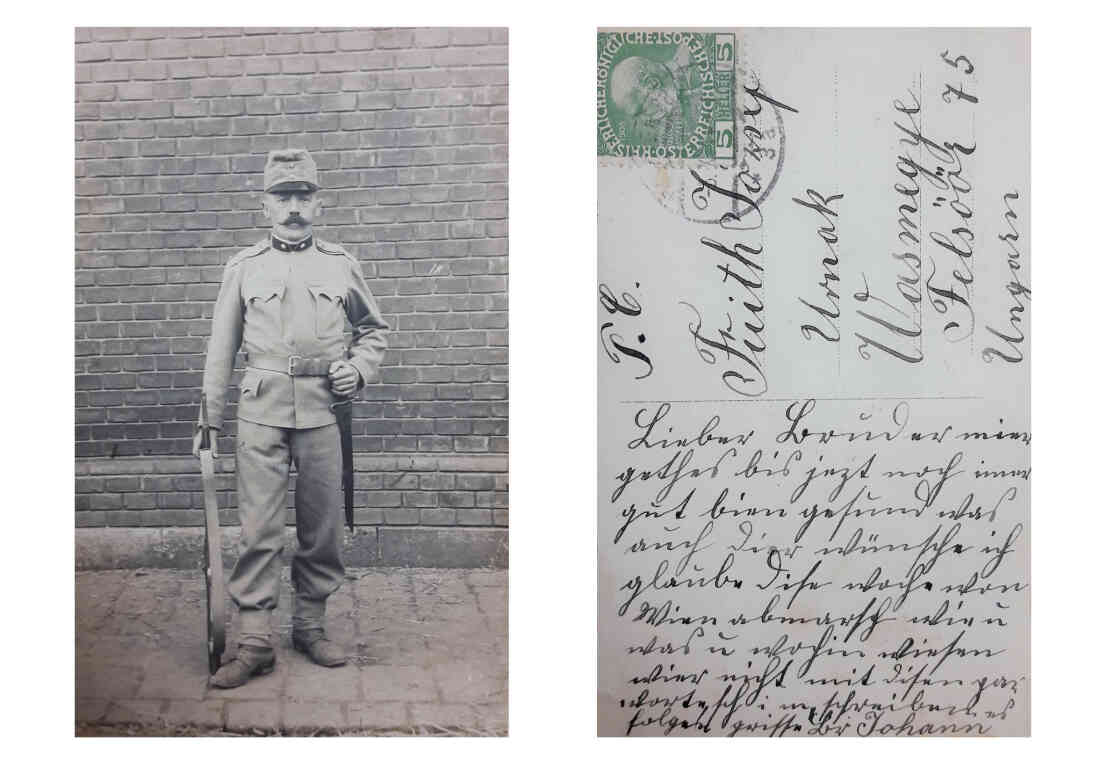 KAISERLICHE KÖNIGLICHE ÖSTERREICHISCHE POST
5 HELLER 5
T. C.
Frith
Urnak
Wasmegye
Felsöör 75
Ungarn
Lieber Bruder mier
gethes bis jezt noch imer
gut bien gesund was
auch dier wünsche ich
glaube dise woche won
Wien abmarsch wie u
was u wohin wiesen
wier nicht mit disen par
worte schreiben es
folgen grisse Br Johann